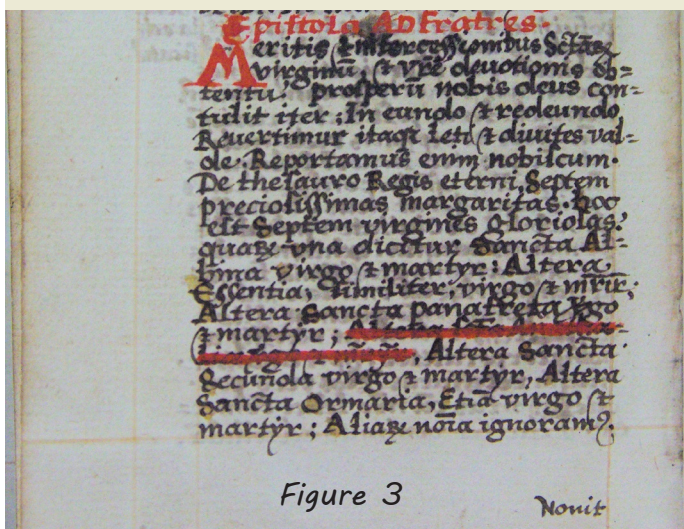 Epistola AD Fratres.
Meritis & intercessionibus Sctāꝝ
virginū, & vr̄e deuotionis ob=
tentu. prosperū nobis deus con=
tulit iter: In eundo & redeundo
Reuertimur itaqꝫ leti & diuites val=
de. Reportamus enim nobiscum.
De thesauro Regis eterni, Septem
preciosissimas margaritas. hoc
est Septem virgines gloriosas.
quaꝝ vna dicitur Sancta Al=
bina virgo & martyr: Altera
Essentia, similiter, virgo & mr̄ir;
Altera Sancta panafreta
& martyr; Altera
Altera Sancta
Secunola virgo & martyr, Altera
Sancta Ormaria, Etiā virgo &
martyr; Aliaꝝ noīa ignoramꝰ.
Figure 3
Nouit